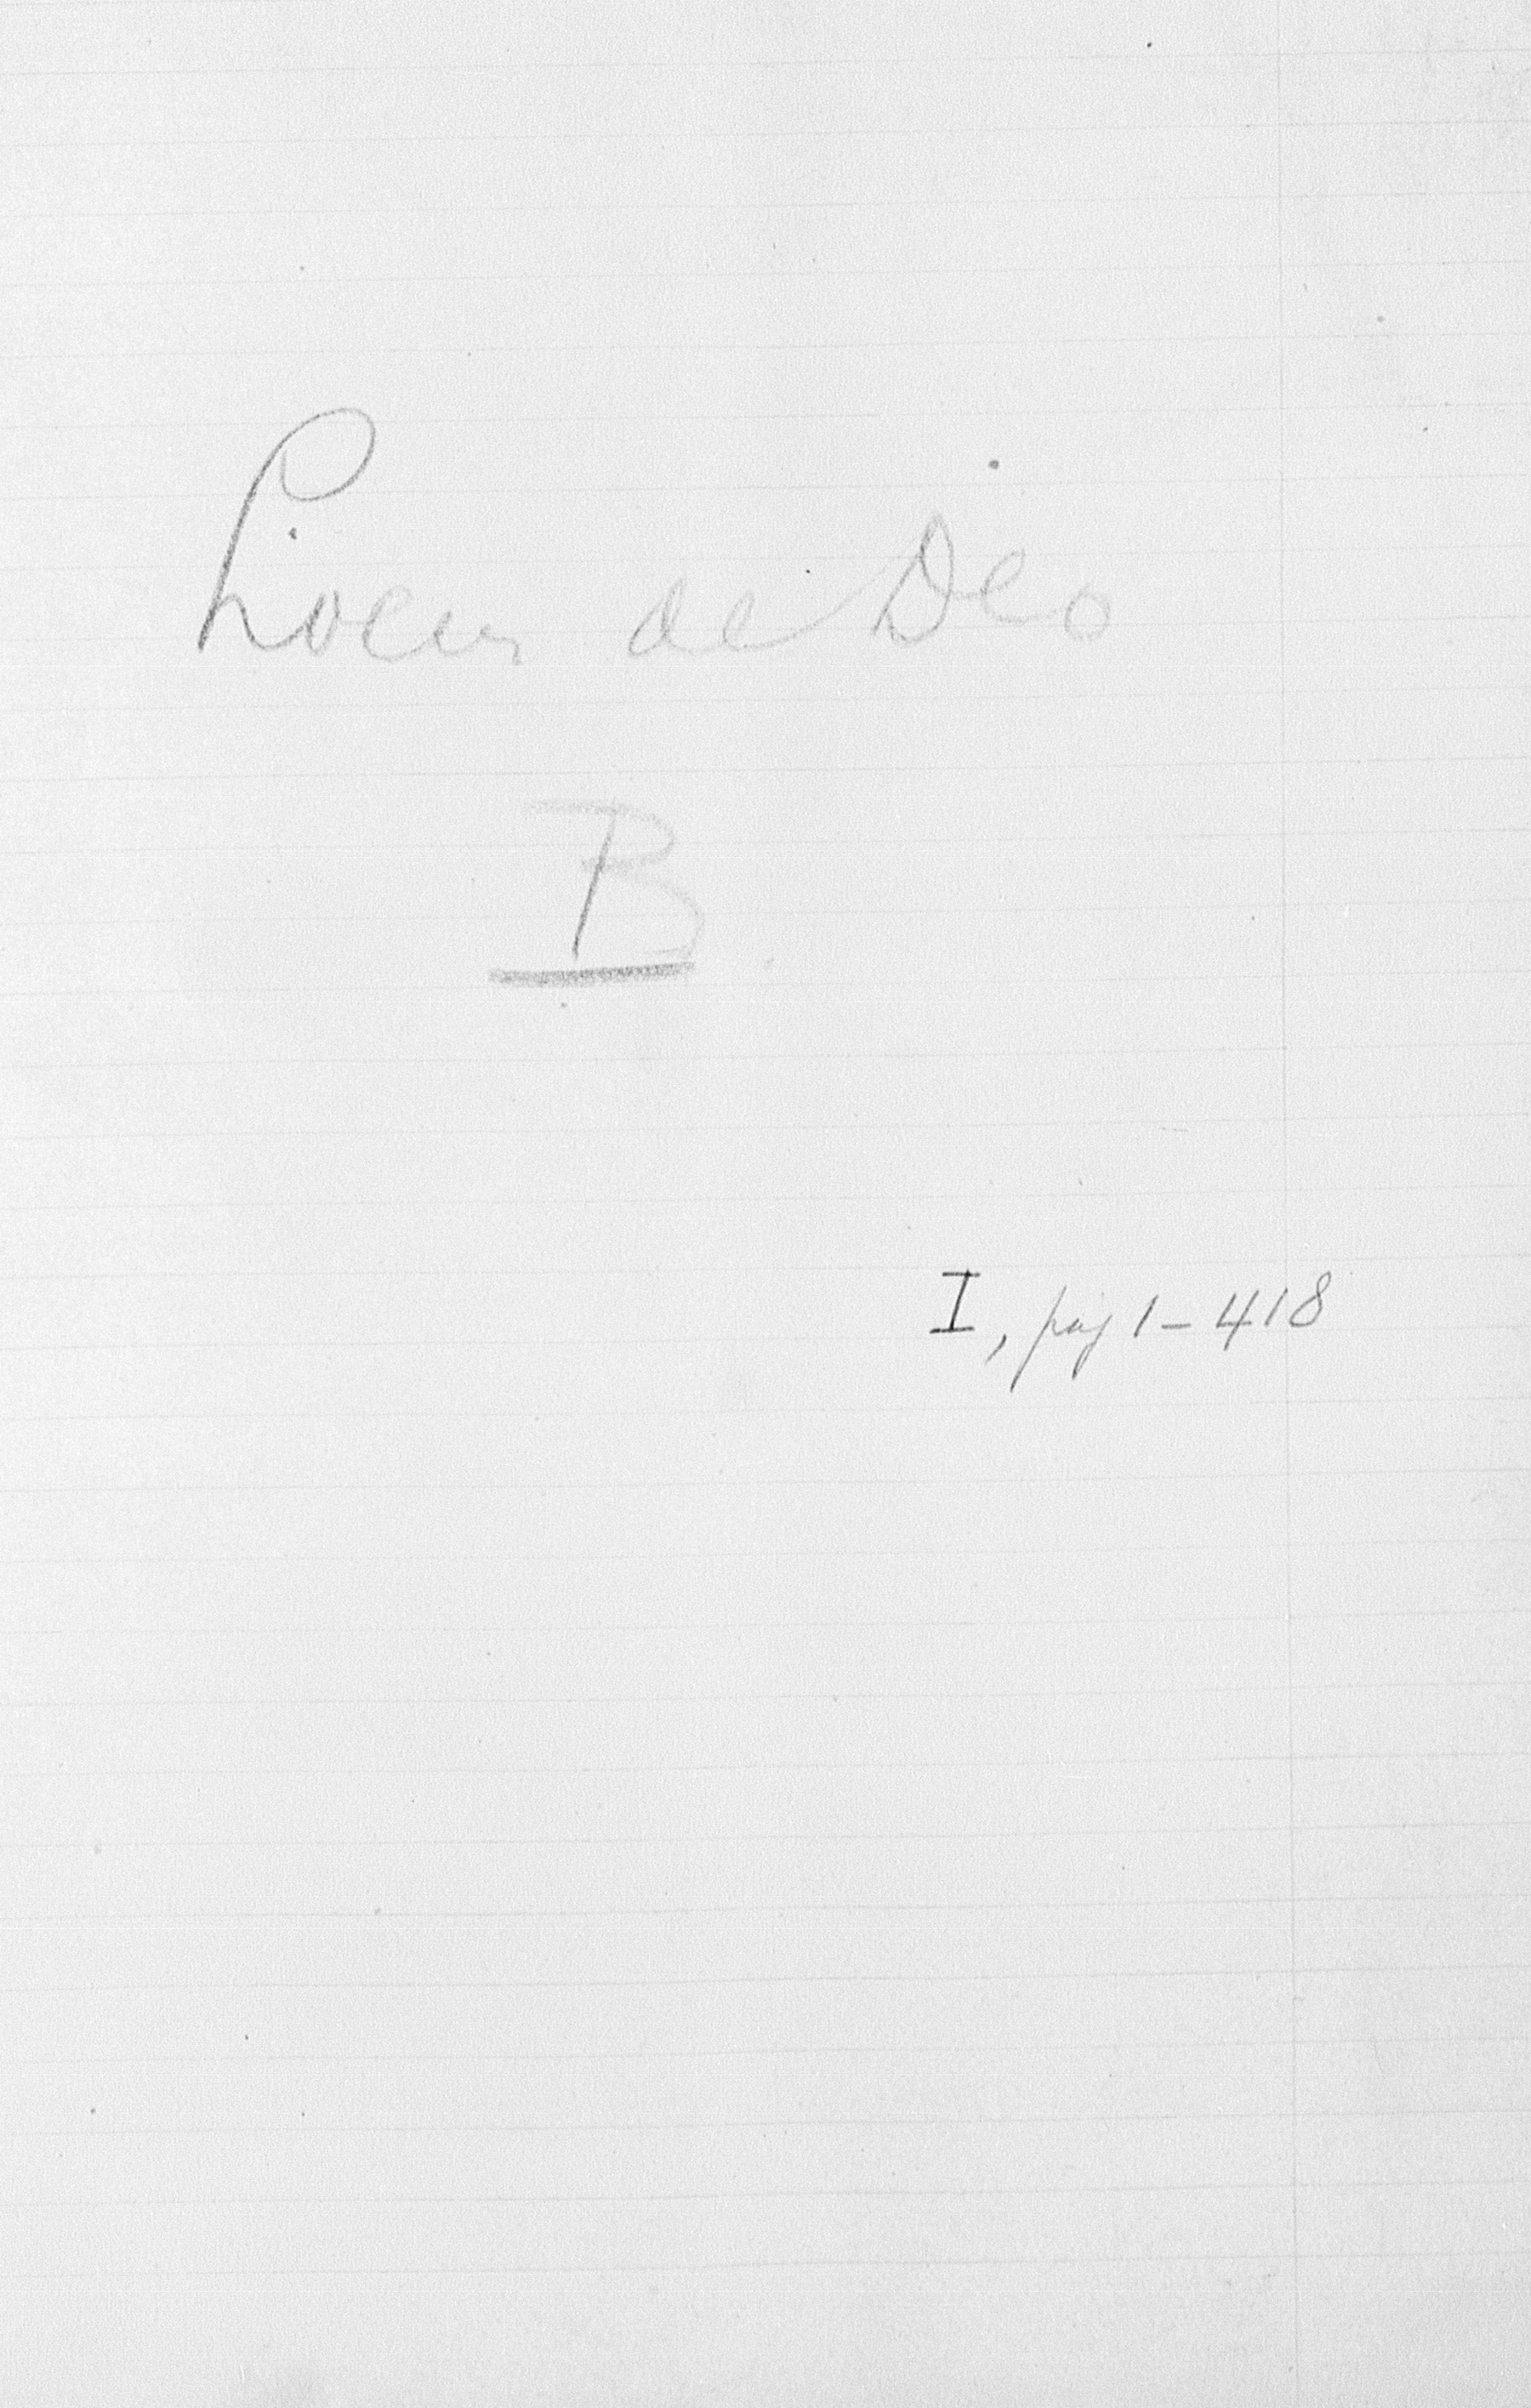 Locus de Deo
B
I, pag 1-418